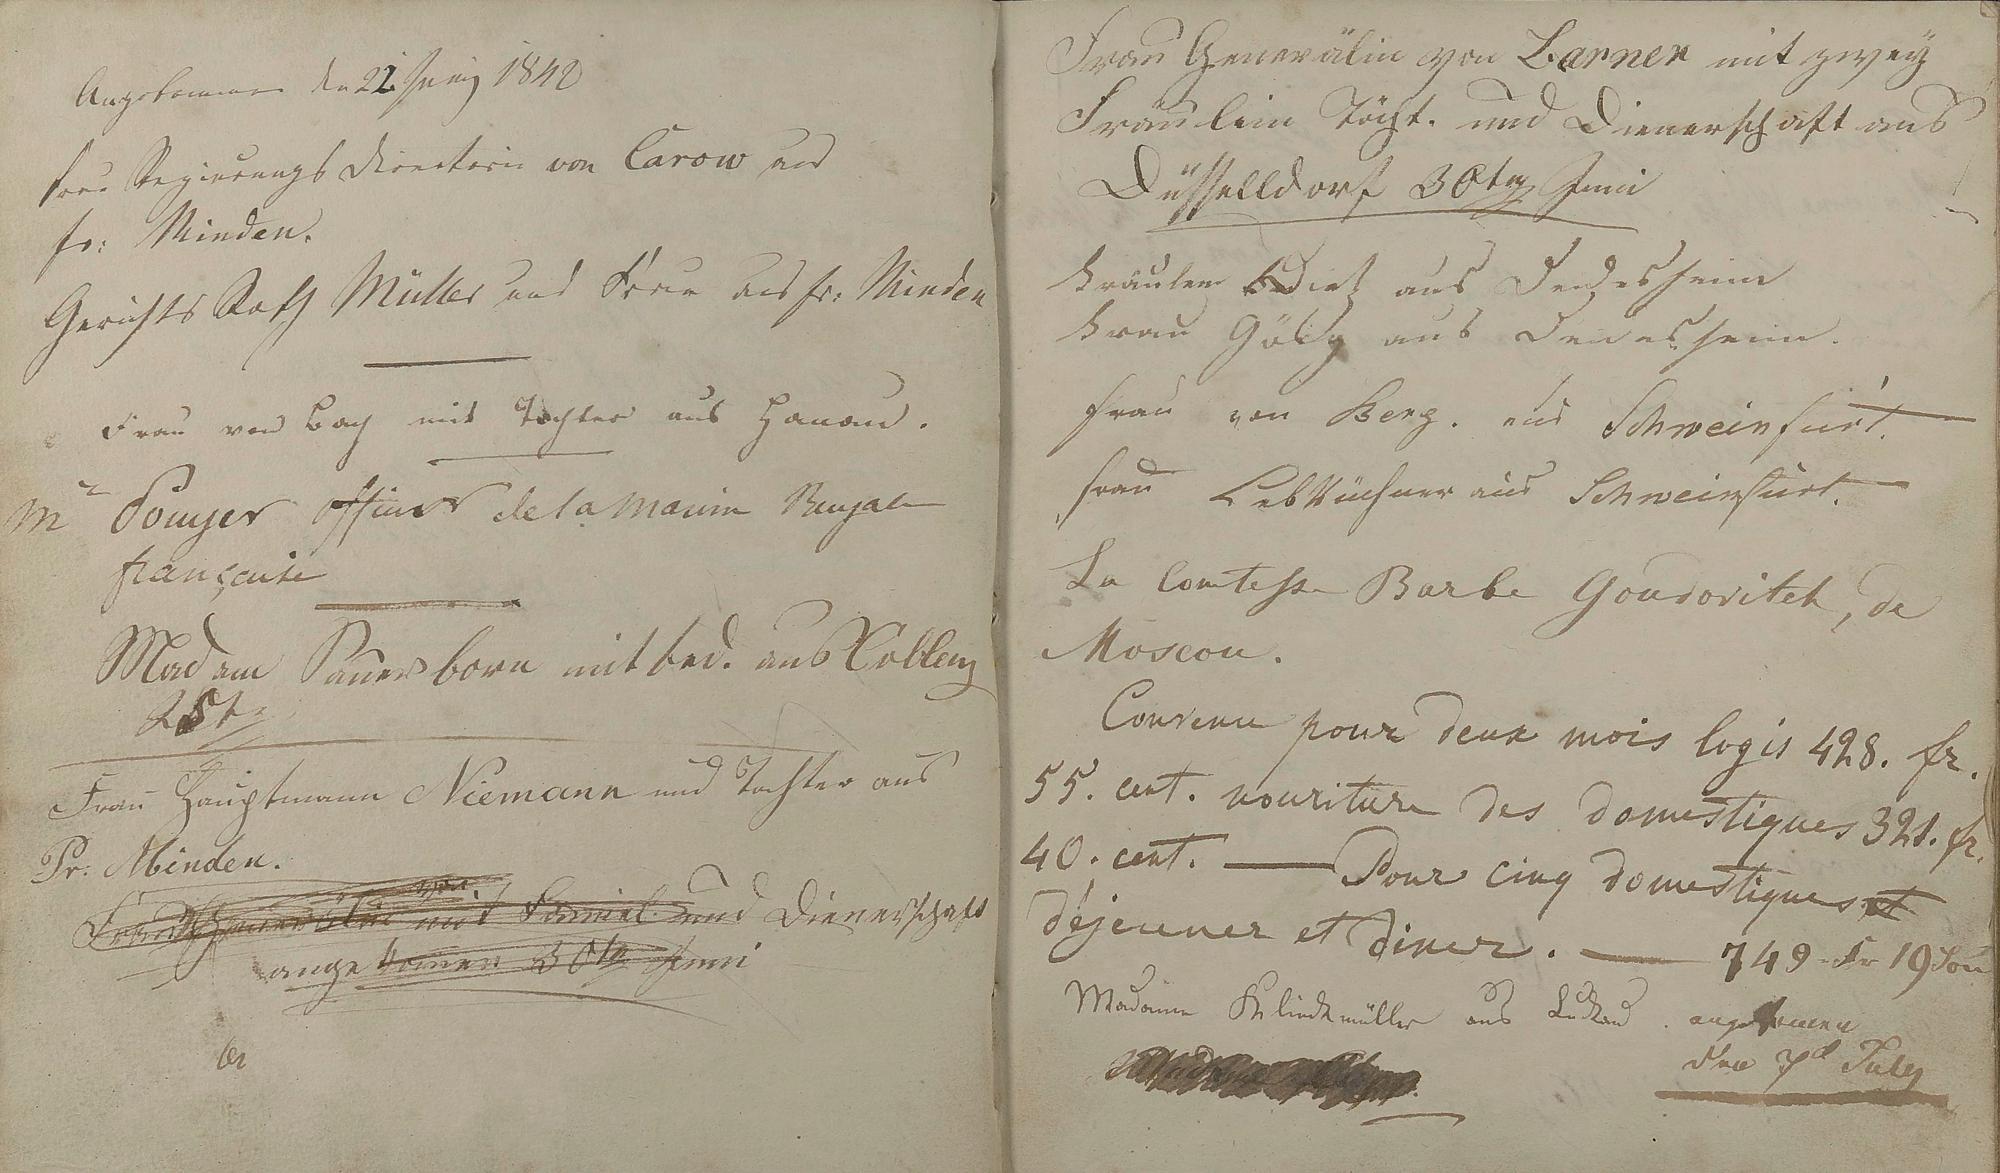 Angekommen den 22 Juny 1842
Frau Regierungs Directorin von Carow aus
Pr: Minden.
Gerichts Rath Müller und Frau aus Pr: Minden
Frau von Bach mit Tochter aus Hanau.
Mr Pouyer officier de la Marine Royale
française
Madam Sauerborn mit bed. aus Coblenz
Frau Hauptmann Niemann und Tochter aus
Pr: Minden.
von
mit Famiel. und Dienerschaft
angekomen 30tn Juni
Frau Generälin von Larner mit zwey
Fräulein Töcht. und Dienerschaft aus
Düsselldorf 30tn Juni
Fräulen aus Deidesheim
Frau aus
Frau von Berg. aus Schweinfurt.
Frau Lebküchner aus Schweinfurt.
La Comtesse Barbe Goudovitch, de
Moscou.
Convenu pour deux mois logis 428. fr.
55. cent. nouriture des domestiques 321. fr.
40. cent. — Pour cinq domestiques et
déjeuner et diner. — 749 Fr 19 Sou
Madame aus Luckau. angekomen
den 7d July